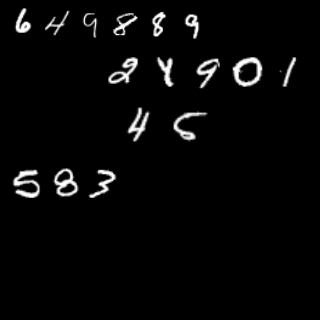 649889
24901
45
583